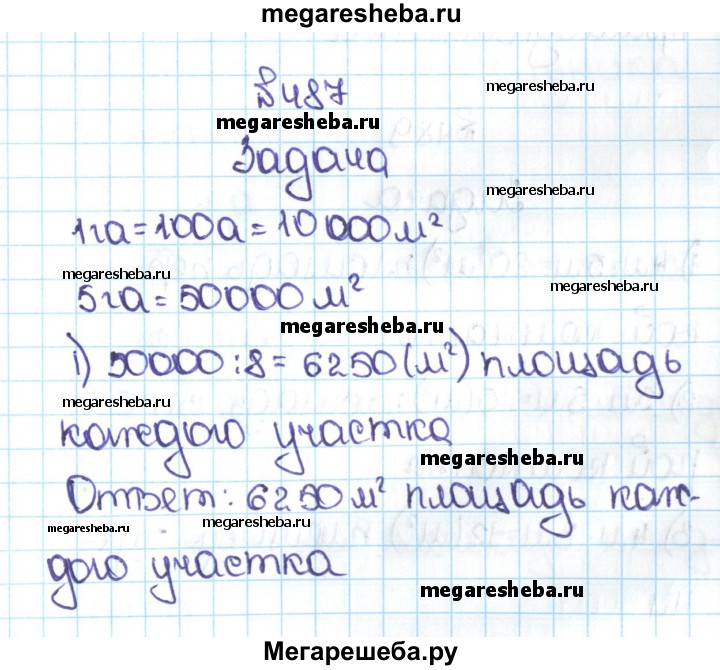 megaresheba.ru
№487
megaresheba.ru
megaresheba.ru
Задача
megaresheba.ru
1га=100а=10000м²
megaresheba.ru
5га=50000м²
megaresheba.ru
megaresheba.ru
1) 50000:8=6250(м²) площадь
megaresheba.ru
каждого участка
megaresheba.ru
Ответ: 6250м² площадь каж-
megaresheba.ru
megaresheba.ru
дого участка
megaresheba.ru
Мегарешеба.ру